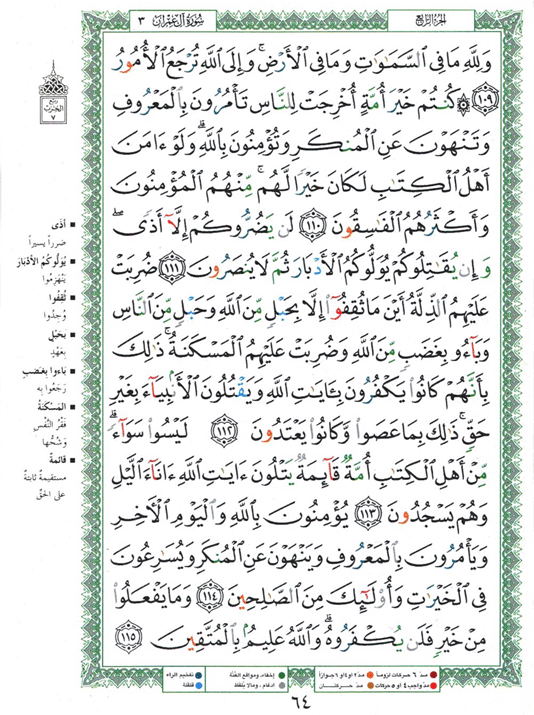 الجزء الرابع
سورة آل عمران ٣
وَلِلَّهِ مَا فِى ٱلسَّمَٰوَٰتِ وَمَا فِى ٱلْأَرْضِ ۚ وَإِلَى ٱللَّهِ تُرْجَعُ ٱلْأُمُورُ
١٠٩ ۞ كُنتُمْ خَيْرَ أُمَّةٍ أُخْرِجَتْ لِلنَّاسِ تَأْمُرُونَ بِٱلْمَعْرُوفِ
وَتَنْهَوْنَ عَنِ ٱلْمُنكَرِ وَتُؤْمِنُونَ بِٱللَّهِ ۗ وَلَوْ ءَامَنَ
أَهْلُ ٱلْكِتَٰبِ لَكَانَ خَيْرًا لَّهُم ۚ مِّنْهُمُ ٱلْمُؤْمِنُونَ
وَأَكْثَرُهُمُ ٱلْفَٰسِقُونَ ١١٠ لَن يَضُرُّوكُمْ إِلَّآ أَذًى ۖ
وَإِن يُقَٰتِلُوكُمْ يُوَلُّوكُمُ ٱلْأَدْبَارَ ثُمَّ لَا يُنصَرُونَ ١١١ ضُرِبَتْ
عَلَيْهِمُ ٱلذِّلَّةُ أَيْنَ مَا ثُقِفُوٓا۟ إِلَّا بِحَبْلٍ مِّنَ ٱللَّهِ وَحَبْلٍ مِّنَ ٱلنَّاسِ
وَبَآءُو بِغَضَبٍ مِّنَ ٱللَّهِ وَضُرِبَتْ عَلَيْهِمُ ٱلْمَسْكَنَةُ ۚ ذَٰلِكَ
بِأَنَّهُمْ كَانُوا۟ يَكْفُرُونَ بِـَٔايَٰتِ ٱللَّهِ وَيَقْتُلُونَ ٱلْأَنۢبِيَآءَ بِغَيْرِ
حَقٍّ ۚ ذَٰلِكَ بِمَا عَصَوا۟ وَّكَانُوا۟ يَعْتَدُونَ ١١٢ لَيْسُوا۟ سَوَآءً ۗ
مِّنْ أَهْلِ ٱلْكِتَٰبِ أُمَّةٌ قَآئِمَةٌ يَتْلُونَ ءَايَٰتِ ٱللَّهِ ءَانَآءَ ٱلَّيْلِ
وَهُمْ يَسْجُدُونَ ١١٣ يُؤْمِنُونَ بِٱللَّهِ وَٱلْيَوْمِ ٱلْءَاخِرِ
وَيَأْمُرُونَ بِٱلْمَعْرُوفِ وَيَنْهَوْنَ عَنِ ٱلْمُنكَرِ وَيُسَٰرِعُونَ
فِى ٱلْخَيْرَٰتِ وَأُو۟لَٰٓئِكَ مِنَ ٱلصَّٰلِحِينَ ١١٤ وَمَا يَفْعَلُوا۟
مِنْ خَيْرٍ فَلَن يُكْفَرُوهُ ۗ وَٱللَّهُ عَلِيمٌۢ بِٱلْمُتَّقِينَ ١١٥
ربع
الحزب
٧
أذى
ضرراً يسيراً
يُوَلُّوكُمُ الأَدْبَارَ
يَنْهَزِمُوا
ثُقِفُوا
وُجِدُوا
بِحَبْلٍ
بِعَهْدٍ
بَاءوا بِغَضَبٍ
رَجَعُوا به
المَسْكَنَةُ
فَقْرُ النَّفْسِ
وشُحُّها
قَائمةٌ
مستقيمةٌ ثابتةٌ
على الحَقّ
مدّ ٦ حركات لزوماً
مدّ ٢ أو ٤ أو ٦ جوازاً
إخفاء، ومواقع الغُنَّة
تفخيم الراء
مدّ واجب ٤ أو ٥ حركات
مدّ حركتان
ادغام ، ومالا يُلفَظ
قلقلة
٦٤